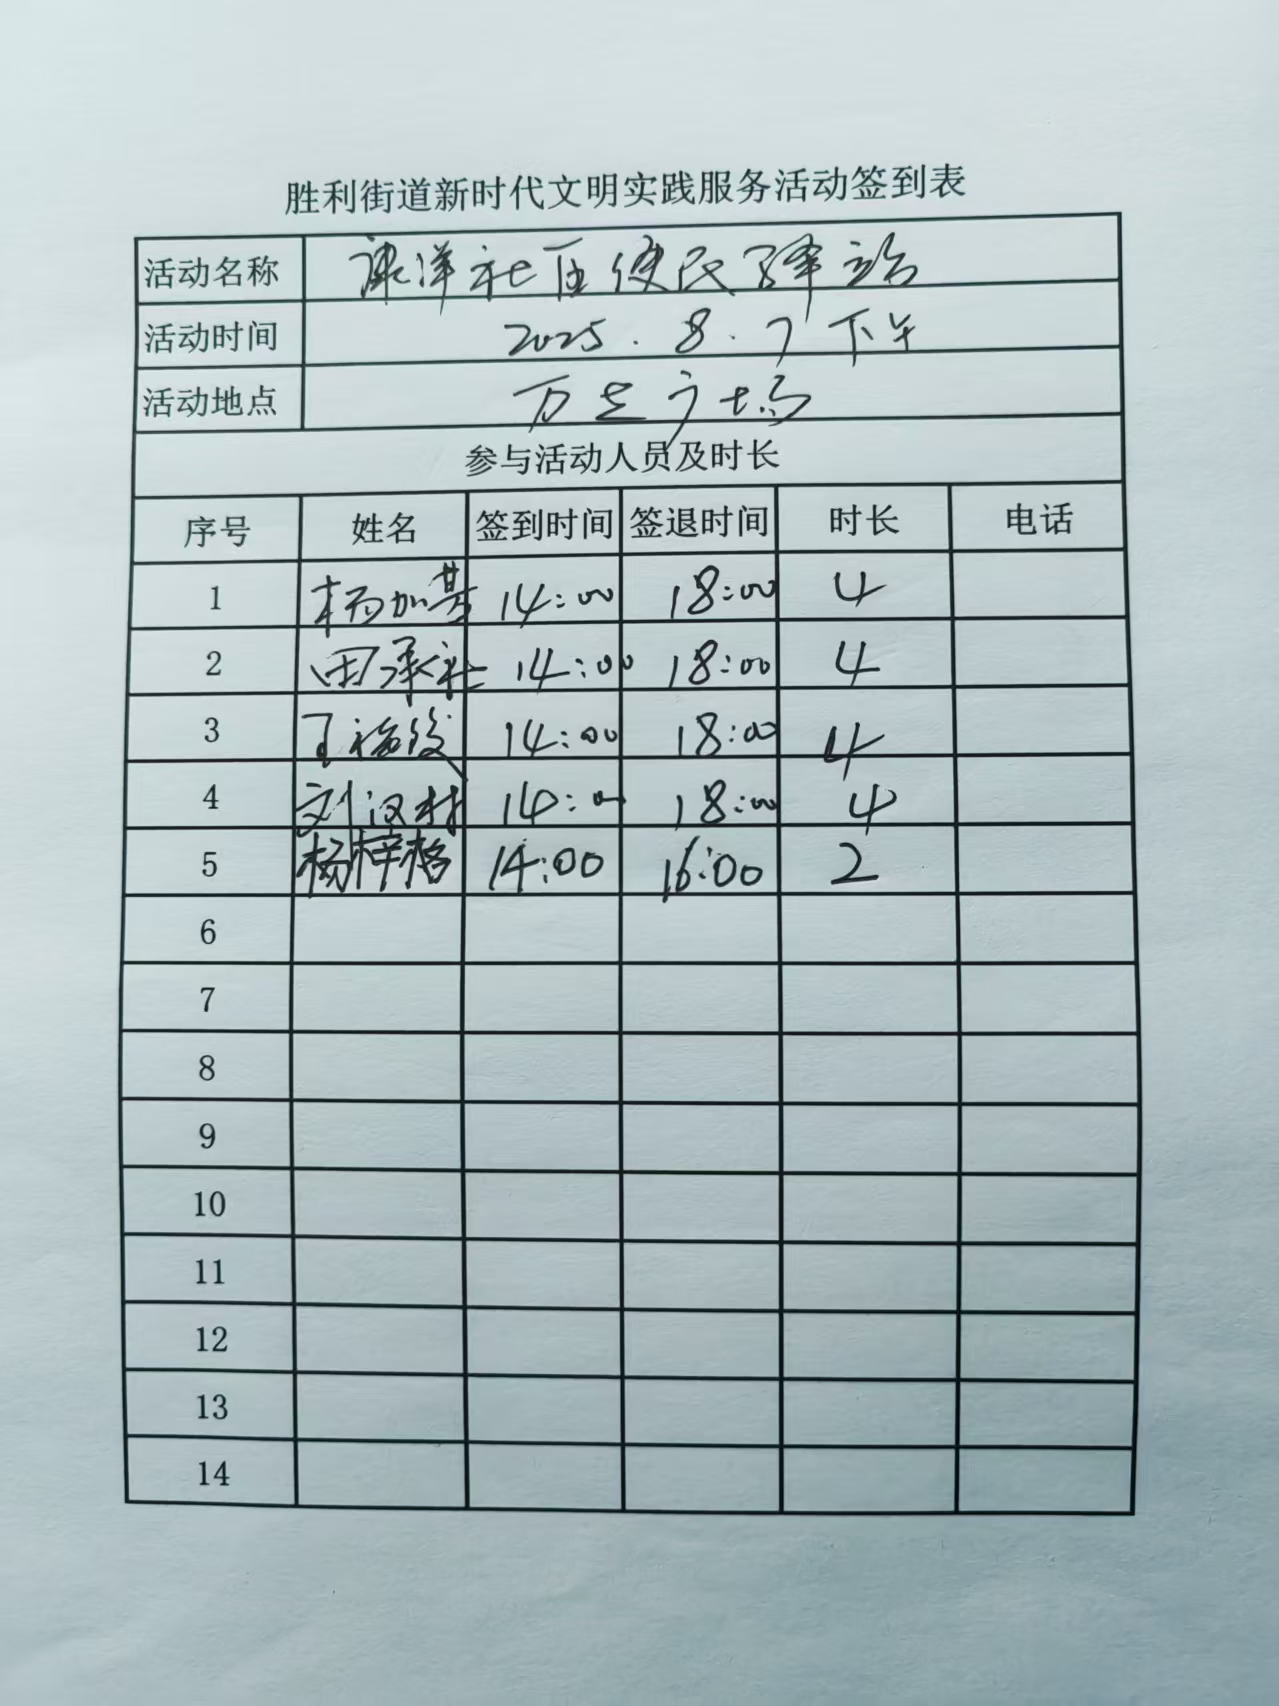 胜利街道新时代文明实践服务活动签到表
活动名称 康洋社区便民驿站
活动时间 2025.8.7下午
活动地点 万达广场
参与活动人员及时长
序号 姓名 签到时间 签退时间 时长 电话
1 杨加基 14:00 18:00 4
2 田承社 14:00 18:00 4
3 王 14:00 18:00 4
4 刘汉村 14:00 18:00 4
5 杨梓格 14:00 16:00 2
6
7
8
9
10
11
12
13
14